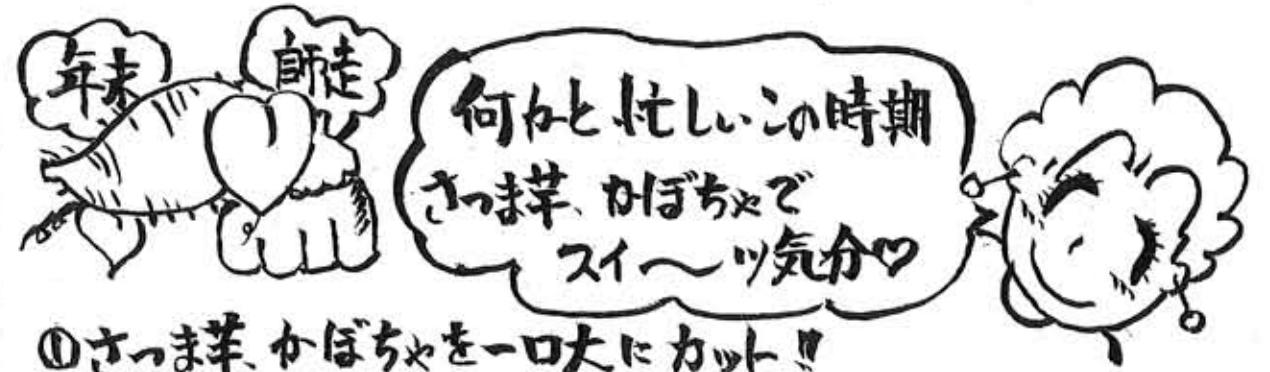 年末
師走
何かと忙しいこの時期
さつま芋、かぼちゃで
スイ〜ッ気分♡
①さつま芋、かぼちゃを一口大にカット!!